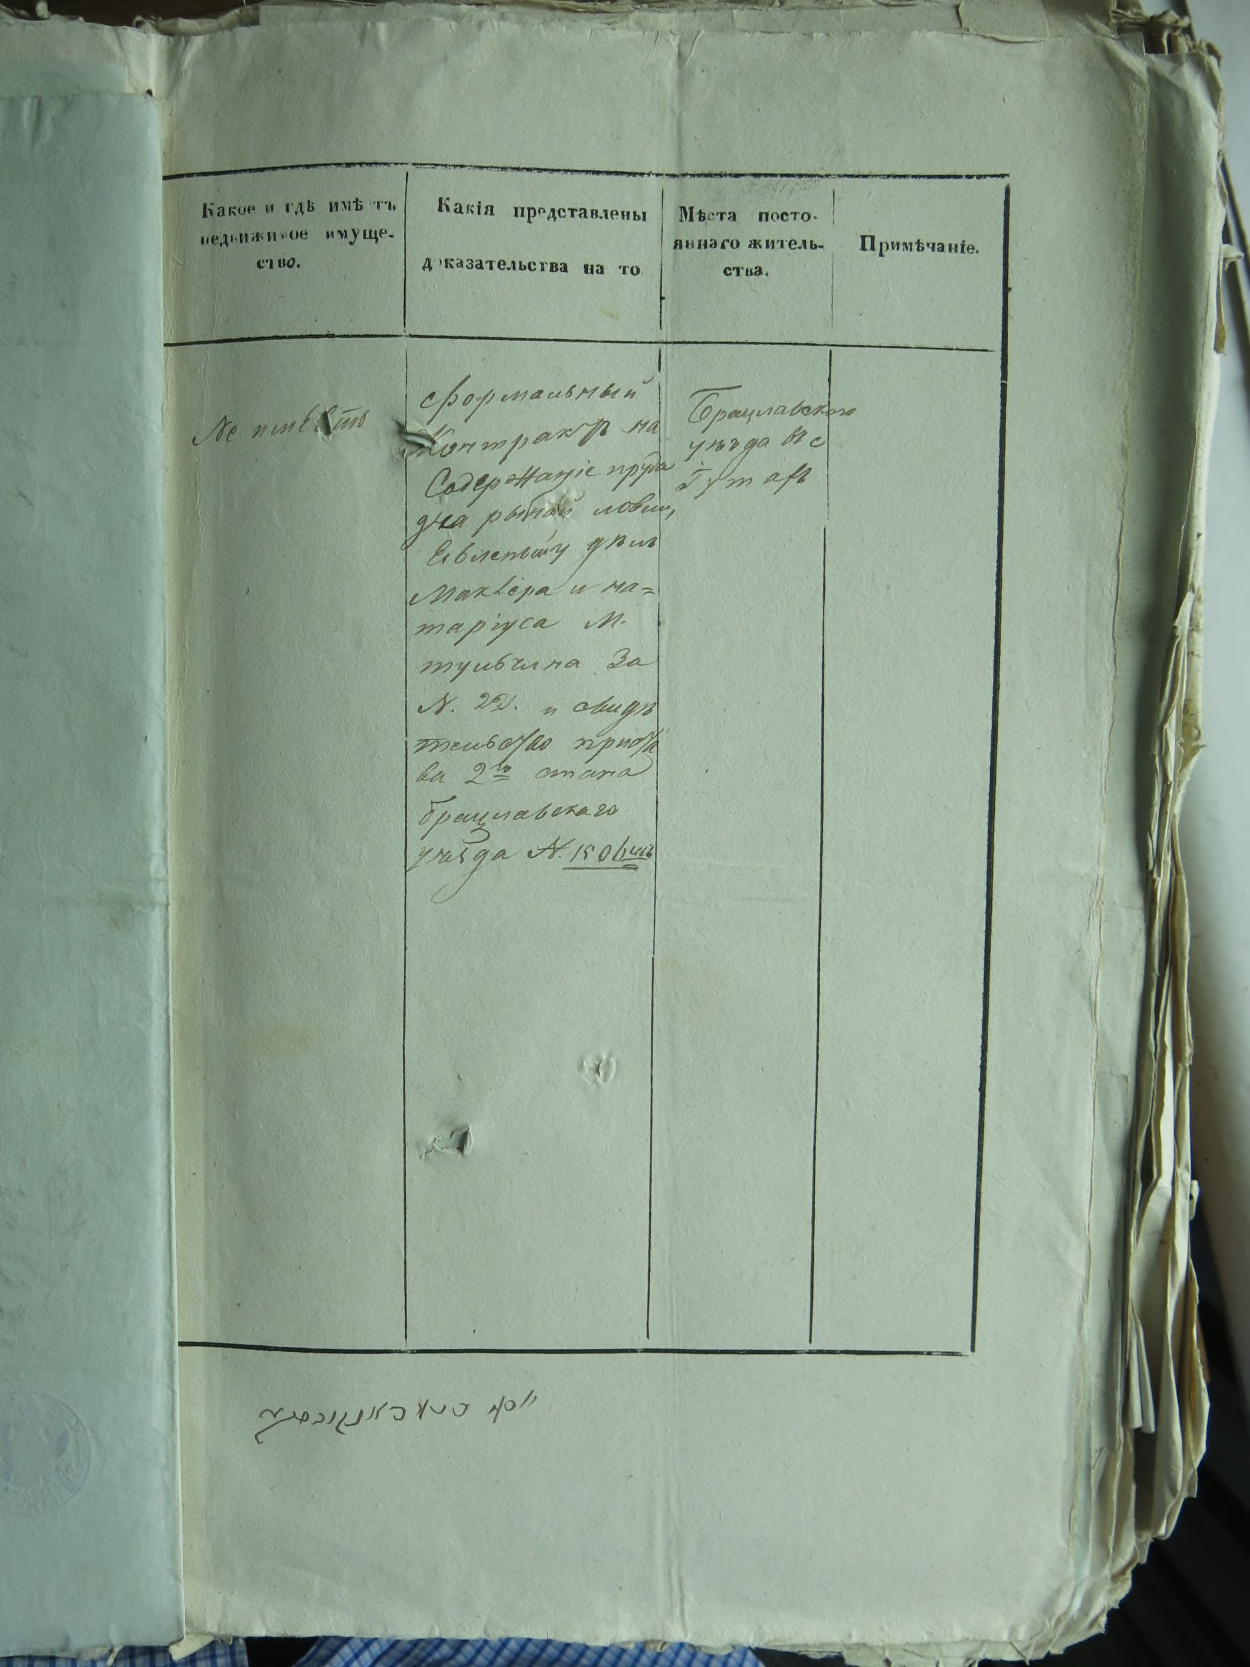 Какое и гдѣ имѣетъ
недвижимое имуще-
ство.
Какія представлены
доказательства на то
Мѣста посто-
яннаго житель-
ства.
Примѣчаніе.
Не имѣетъ
формальный
Контрактъ на
Содержаніе пруда
для рыбной ловли,
дѣлъ
Маклера и на=
таріуса М.
тульчина За
N. 22. и свидѣ
тельство приста
ва 2го стана
Брацлавского
уѣзда N.
Брацлавского
уѣзда въ с